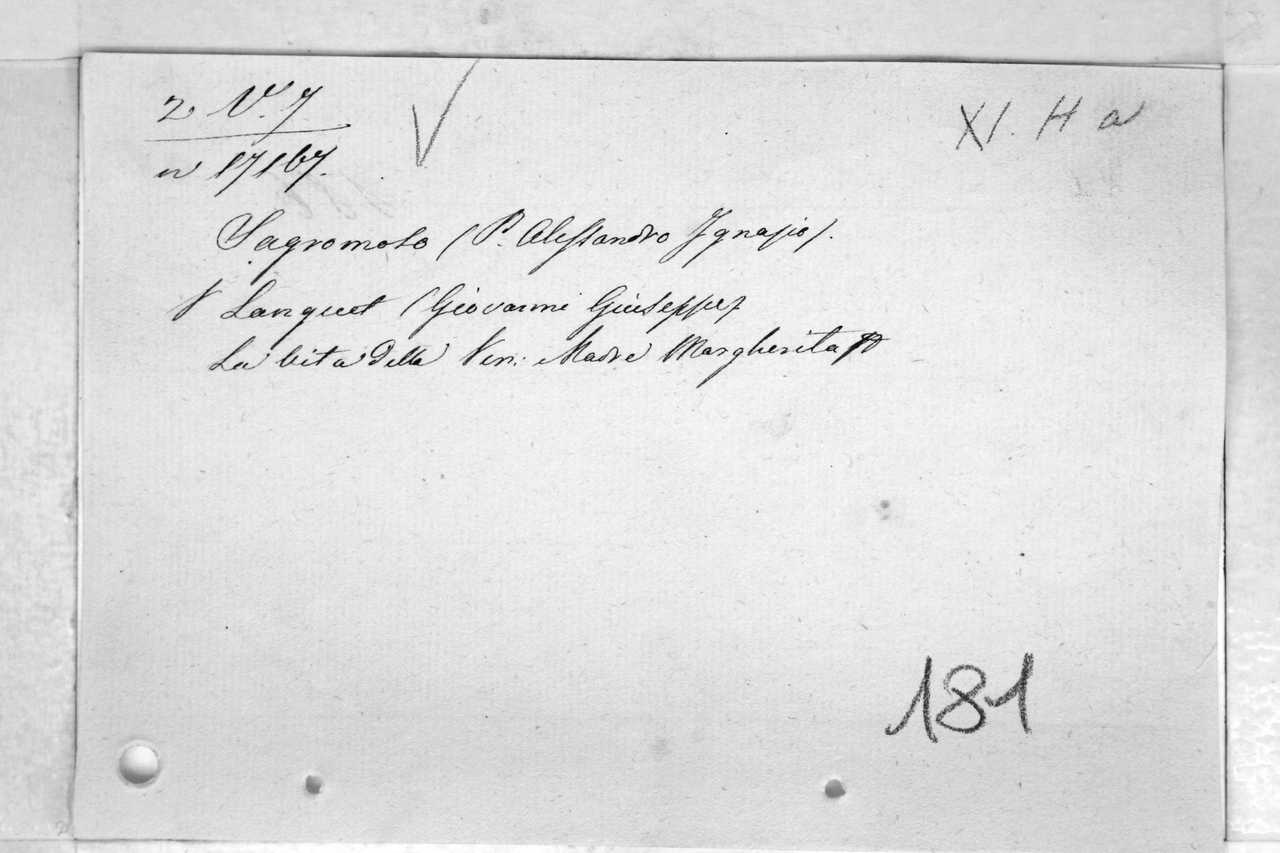 2 V. 7.
XI. H a
n 17167.
Sagromoso (P. Alessandro Ignazio).
V Languet (Giovanni Giuseppe)
La vita della Ven: Madre Margherita
181